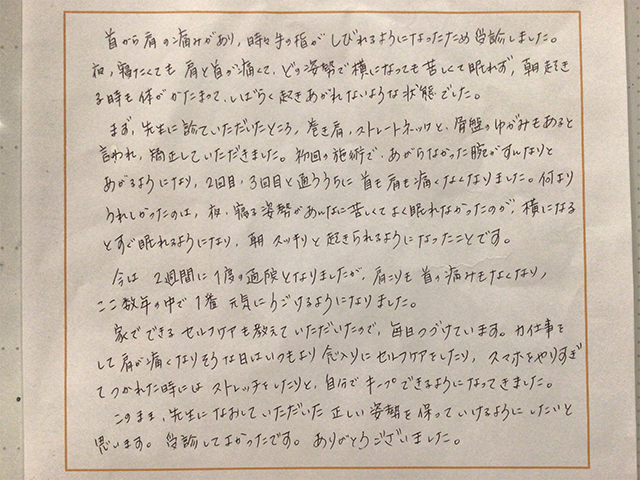 首から肩の痛みがあり、時々手の指がしびれるようになったため受診しました。
夜、寝たくても肩と首が痛くて、どの姿勢で横になっても苦しくて眠れず、朝起き
る時も体がかたまって、しばらく起きあがれないような状態でした。
まず、先生に診ていただいたところ、巻き肩、ストレートネックと、骨盤のゆがみもあると
言われ、矯正していただきました。初回の施術で、あがらなかった腕がすんなりと
あがるようになり、2回目、3回目と通ううちに首も肩も痛くなくなりました。何より
うれしかったのは、夜、寝る姿勢があんなに苦しくてよく眠れなかったのが、横になる
とすぐ眠れるようになり、朝スッキリと起きられるようになったことです。
今は2週間に1度の通院となりましたが、肩こりも首の痛みもなくなり、
ここ数年の中で1番元気にうごけるようになりました。
家でできるセルフケアも教えていただいたので、毎日つづけています。力仕事を
して肩が痛くなりそうな日はいつもより念入りにセルフケアをしたり、スマホをやりすぎ
てつかれた時にはストレッチをしたりと、自分でキープできるようになってきました。
このまま、先生になおしていただいた正しい姿勢を保っていけるようにしたいと
思います。受診してよかったです。ありがとうございました。